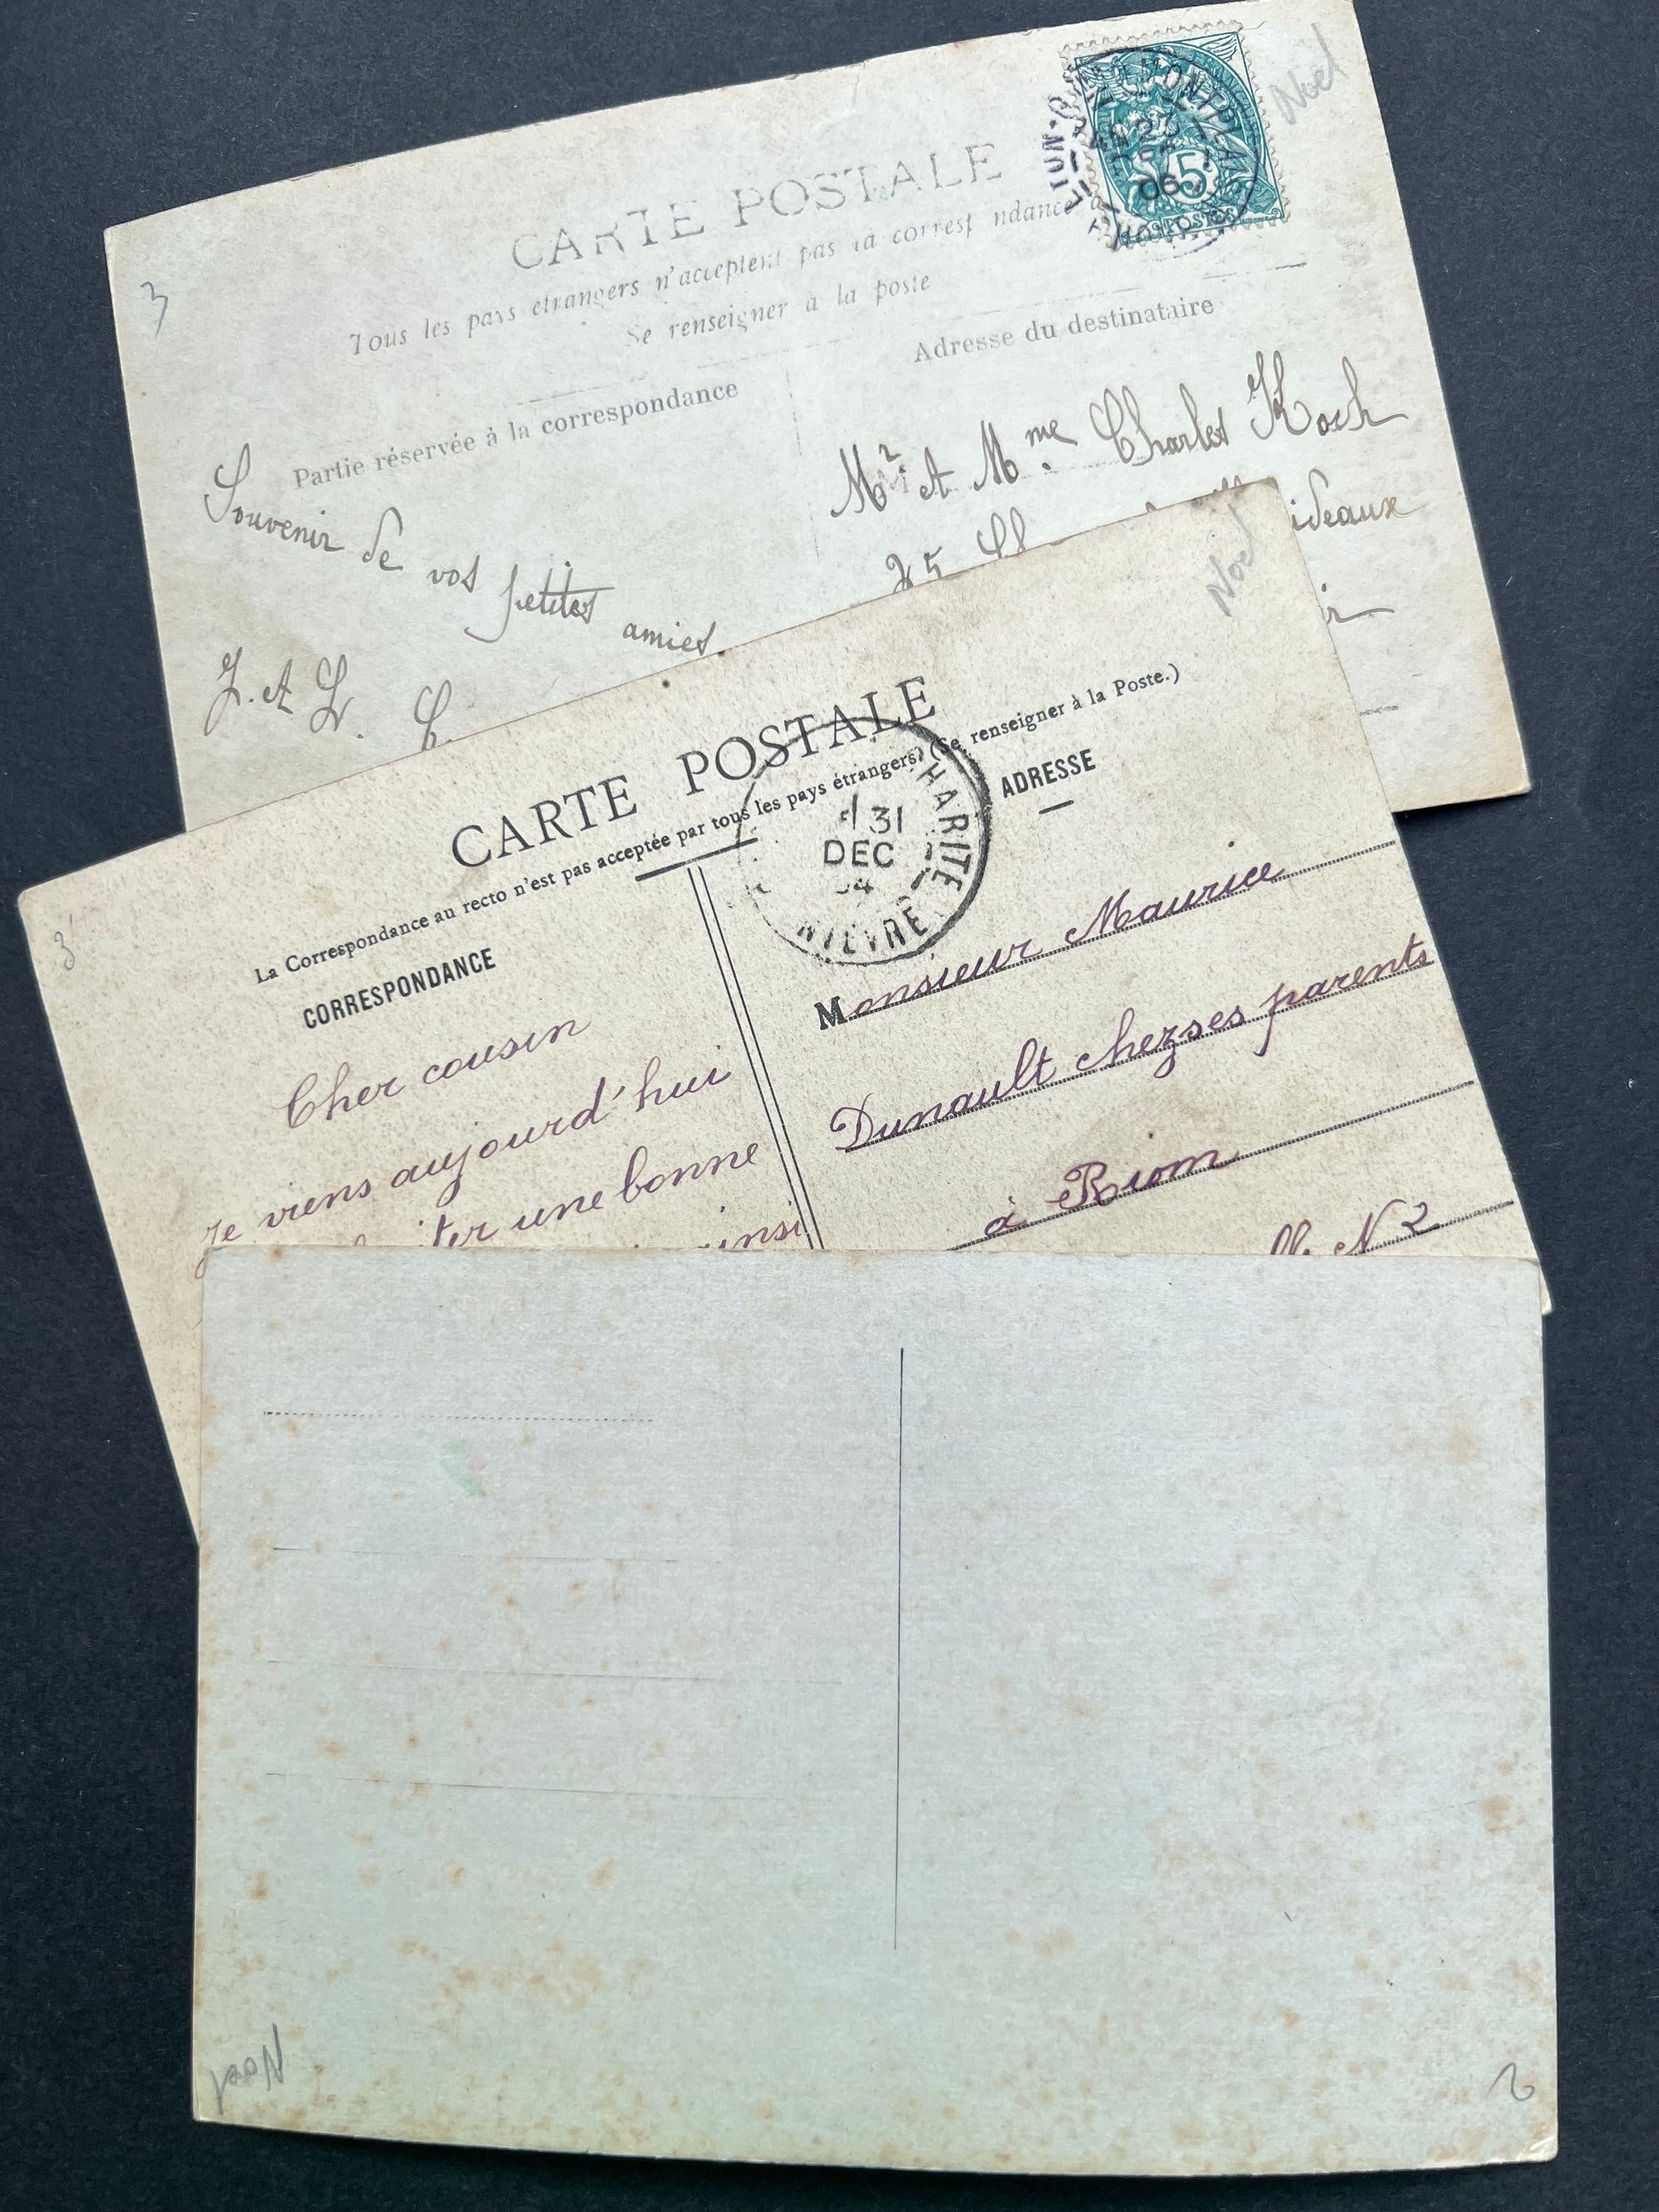 Noel
3
CARTE POSTALE
Tous les pays etrangers n'acceptent pas la correspondance
Se renseigner à la poste
Partie réservée à la correspondance
Adresse du destinataire
5
POSTES
23
DEC
06
Souvenir de vos petites amies.
J. et L. C.
Mr. et Mme. Charles Koch
25
ideaux
Noel
3
CARTE POSTALE
La Correspondance au recto n'est pas acceptée par tous les pays étrangers. (Se renseigner à la Poste.)
CORRESPONDANCE
ADRESSE
CHARITE
31
DEC
NIEVRE
Cher cousin
Je viens aujourd'hui
une bonne
Monsieur Maurice
Dunault chez ses parents
à Riom
N 2
Noel
2